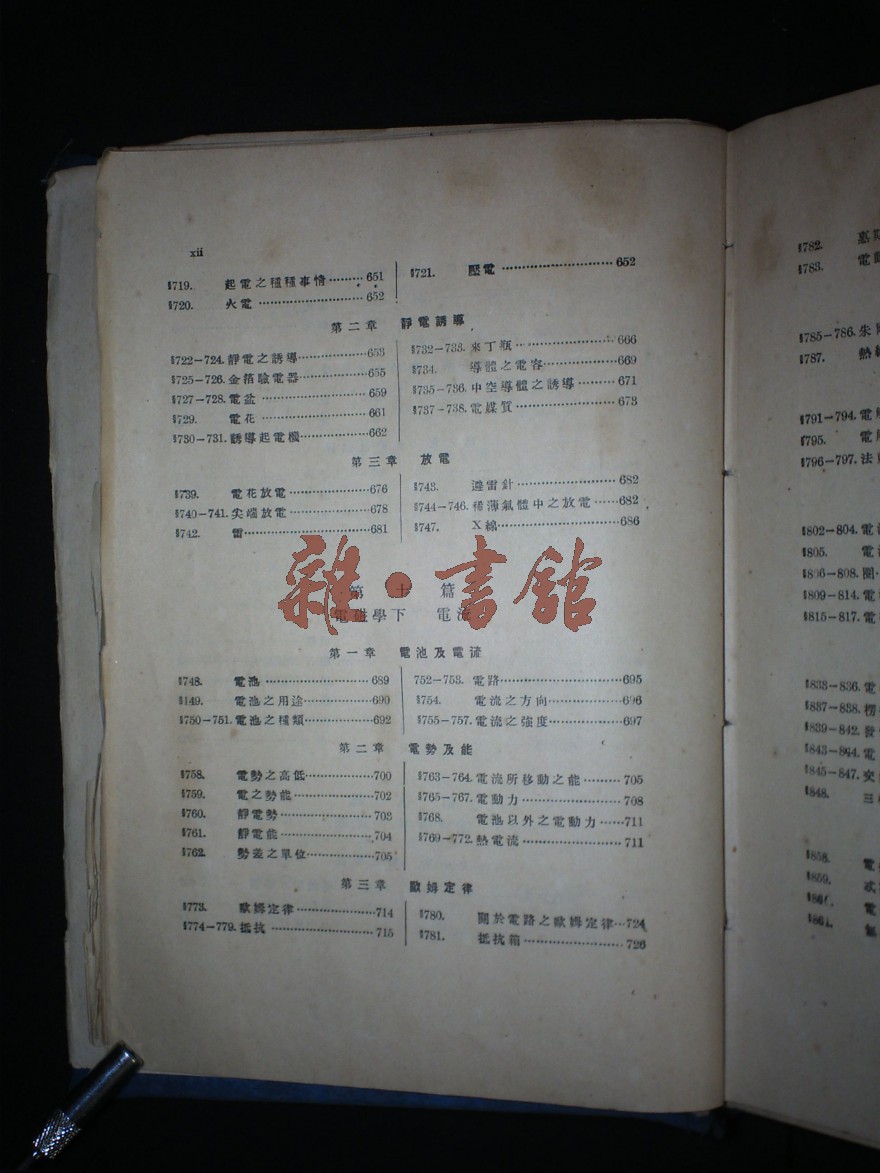 xii
§719. 起電之種種事情………651
§720. 火電………………652
§721. 壓電………………652
第二章 靜電誘導
§722-724. 靜電之誘導…………653
§725-726. 金箔驗電器…………655
§727-728. 電盆………………659
§729. 電花………………661
§730-731. 誘導起電機…………662
§732-733. 來丁瓶………………666
§734. 導體之電容…………669
§735-736. 中空導體之誘導……671
§737-738. 電媒質………………673
第三章 放電
§739. 電花放電……………676
§740-741. 尖端放電……………678
§742. 雷…………………681
§743. 避雷針………………682
§744-746. 稀薄氣體中之放電……682
§747. X線…………………686
第十篇
電磁學下 電流
雜·書舘
第一章 電池及電流
§748. 電池………………689
§149. 電池之用途…………690
§750-751. 電池之種類…………692
752-753. 電路………………695
§754. 電流之方向…………696
§755-757. 電流之強度…………697
第二章 電勢及能
§758. 電勢之高低…………700
§759. 電之勢能……………702
§760. 靜電勢………………703
§761. 靜電能………………704
§762. 勢差之單位…………705
§763-764. 電流所移動之能………705
§765-767. 電動力………………708
§768. 電池以外之電動力……711
§769-772. 熱電流………………711
第三章 歐姆定律
§773. 歐姆定律……………714
§774-779. 抵抗………………715
§780. 關於電路之歐姆定律…724
§781. 抵抗箱………………726
§782.
§783. 電
§785-786. 朱
§787. 熱
§791-794. 電
§795. 電
§796-797. 法
§802-804. 電
§805. 電
§806-808. 圈
§809-814. 電
§815-817. 電
§833-836. 電
§837-838. 楞
§839-842. 發
§843-844. 電
§845-847. 交
§848. 三
§858. 電
§859.